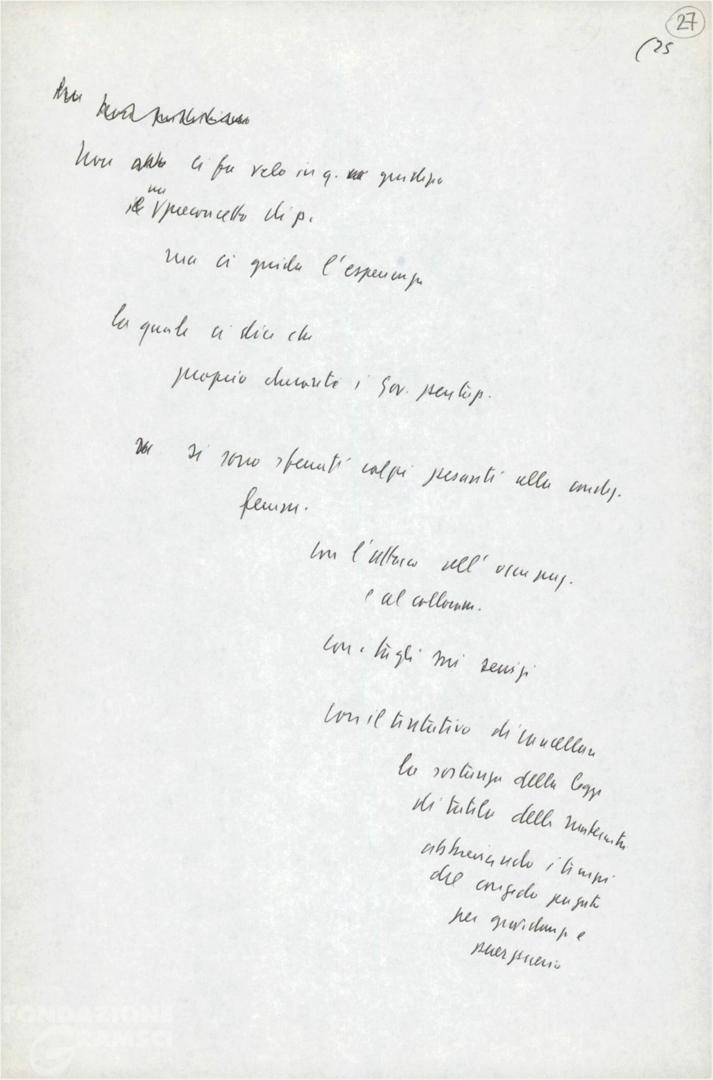 27
(25
Non ci fa velo in q. giudizio
un
il preconcetto di p.
ma ci guida l'esperienza
la quale ci dice che
proprio durante i Gov. pentap.
si sono sferrati colpi pesanti alla condiz.
femm.
con l'attacco all'occupaz.
e al collocam.
con i tagli sui servizi
con il tentativo di cancellare
la sostanza della legge
di tutela della maternità
abbreviando i tempi
del congedo pagato
per gravidanza e
puerperio
FONDAZIONE
GRAMSCI